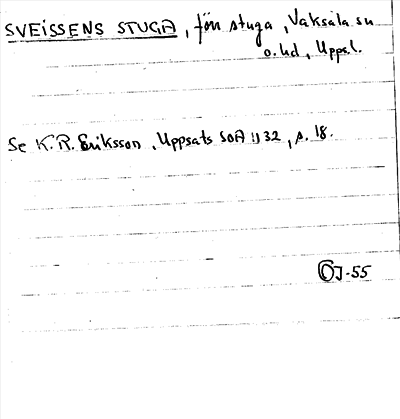 SVEISSENS STUGA, förr stuga, Vaksala sn
o. hd, Uppsl.
Se K.R. Eriksson, Uppsats SOA 1932, s. 18.
ÖJ-55